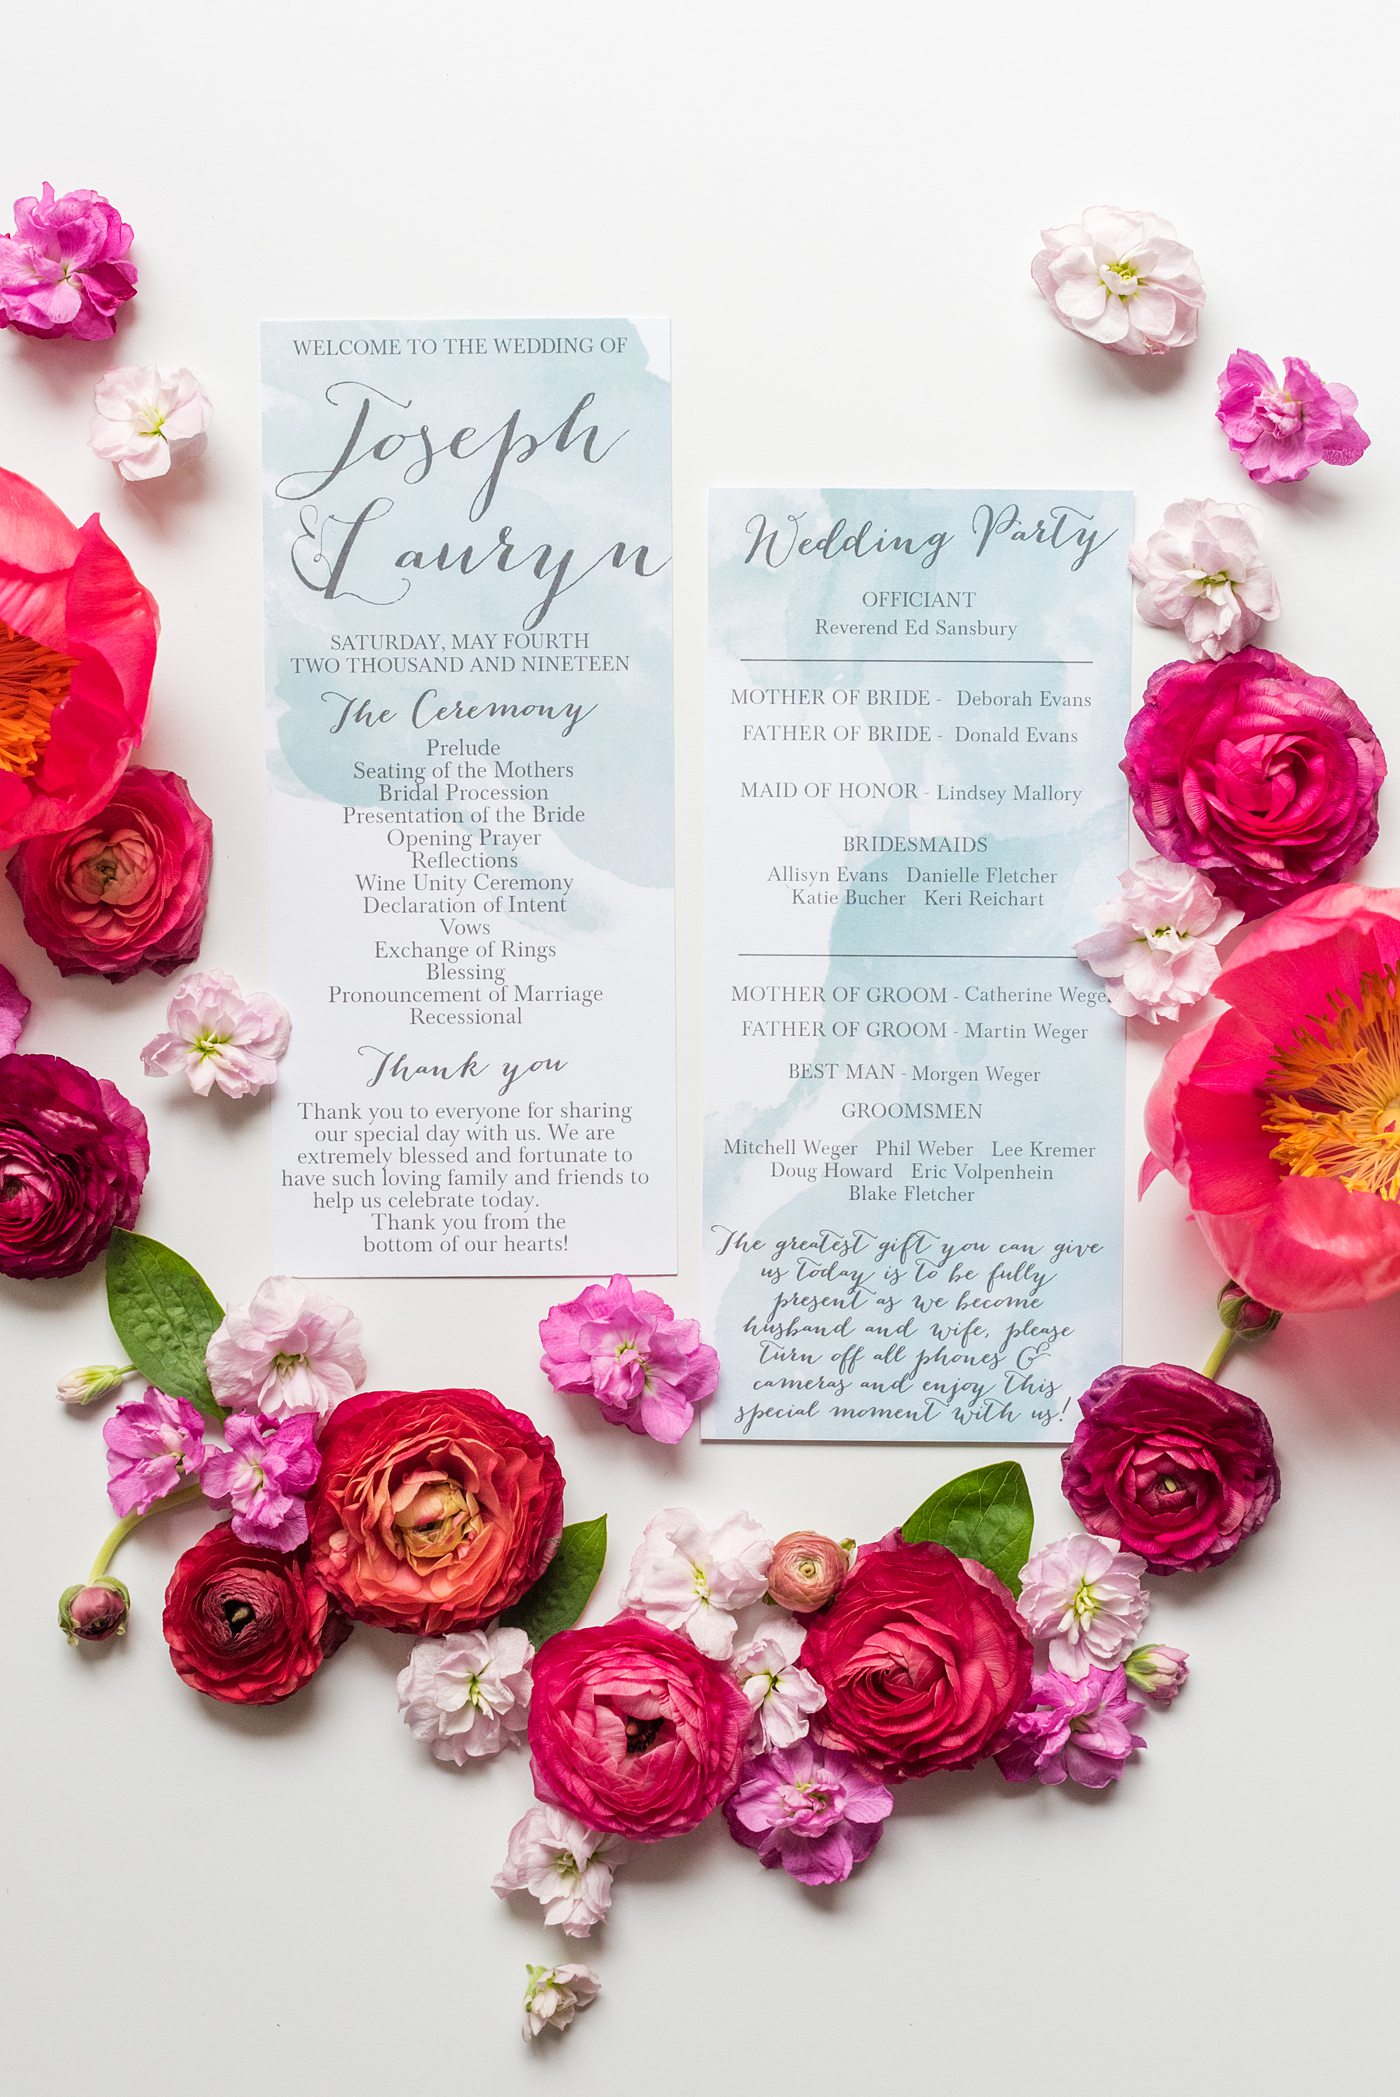 WELCOME TO THE WEDDING OF
Joseph
& Lauryn
SATURDAY, MAY FOURTH
TWO THOUSAND AND NINETEEN
The Ceremony
Prelude
Seating of the Mothers
Bridal Procession
Presentation of the Bride
Opening Prayer
Reflections
Wine Unity Ceremony
Declaration of Intent
Vows
Exchange of Rings
Blessing
Pronouncement of Marriage
Recessional
Thank you
Thank you to everyone for sharing
our special day with us. We are
extremely blessed and fortunate to
have such loving family and friends to
help us celebrate today.
Thank you from the
bottom of our hearts!
Wedding Party
OFFICIANT
Reverend Ed Sansbury
MOTHER OF BRIDE - Deborah Evans
FATHER OF BRIDE - Donald Evans
MAID OF HONOR - Lindsey Mallory
BRIDESMAIDS
Allisyn Evans Danielle Fletcher
Katie Bucher Keri Reichart
MOTHER OF GROOM - Catherine Weger
FATHER OF GROOM - Martin Weger
BEST MAN - Morgen Weger
GROOMSMEN
Mitchell Weger Phil Weber Lee Kremer
Doug Howard Eric Volpenhein
Blake Fletcher
The greatest gift you can give
us today is to be fully
present as we become
husband and wife, please
turn off all phones &
cameras and enjoy this
special moment with us!